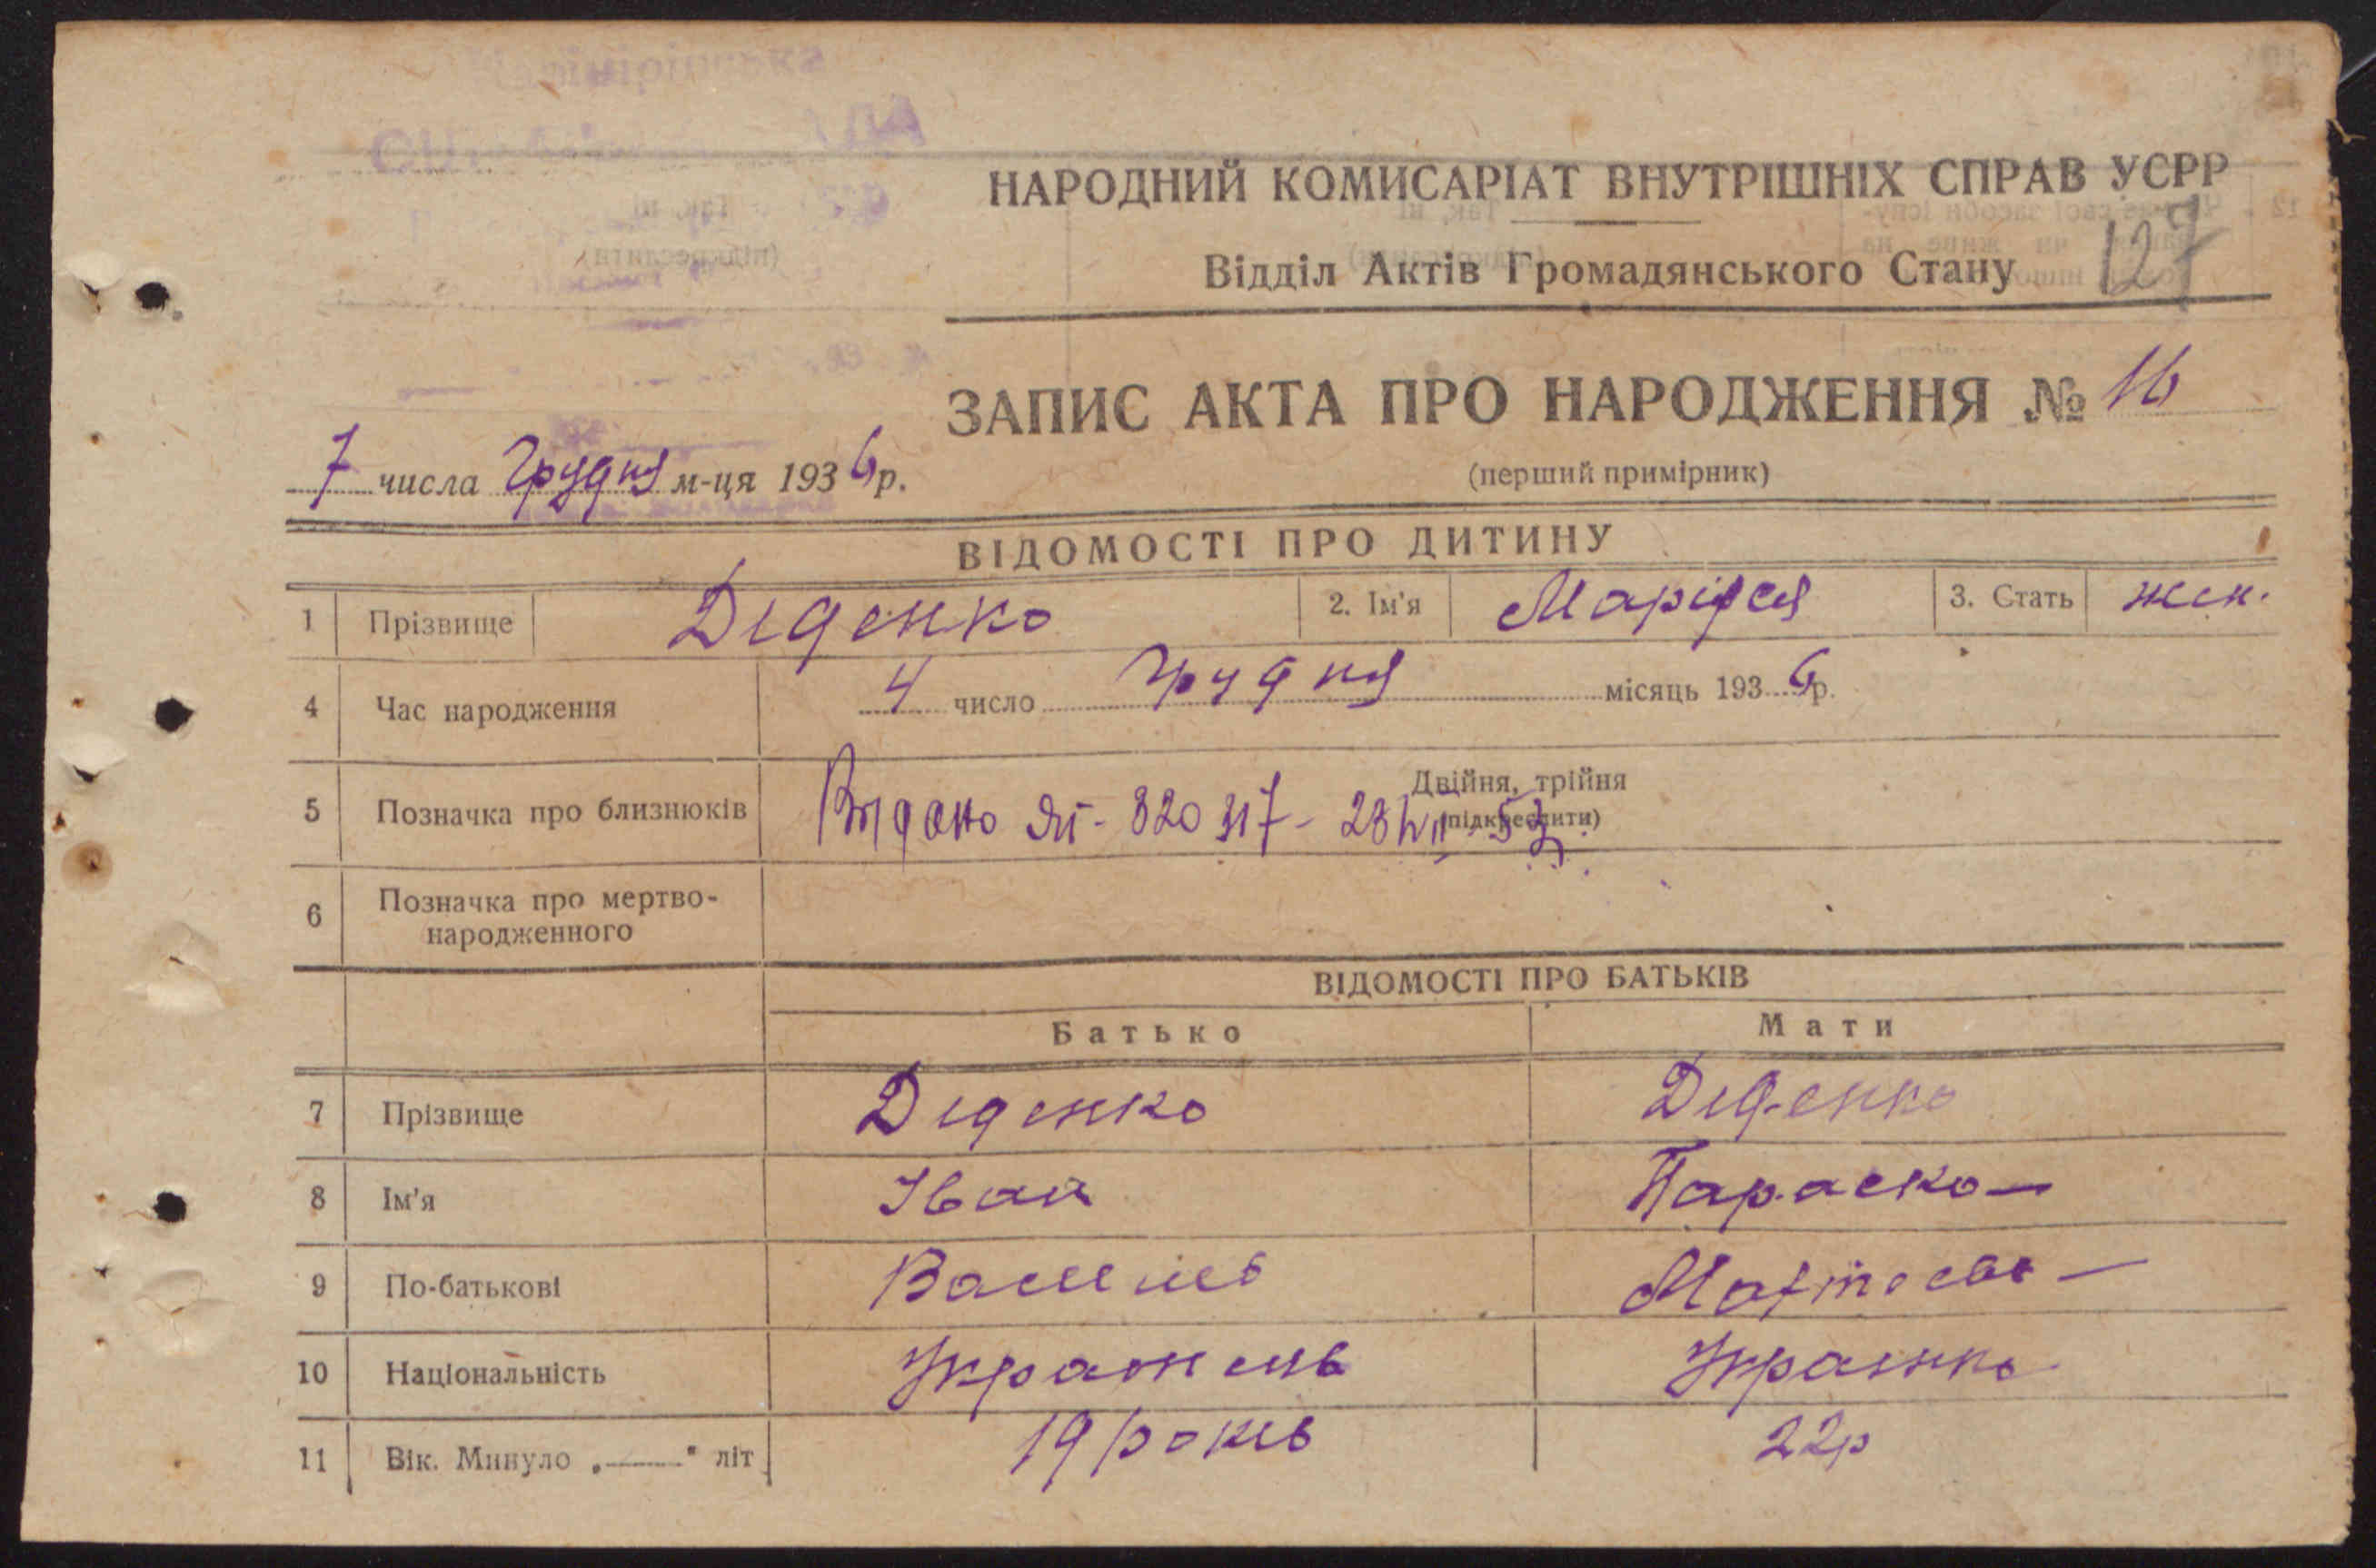 НАРОДНИЙ КОМИСАРІАТ ВНУТРІШНІХ СПРАВ УСРР
Відділ Актів Громадянського Стану 127
ЗАПИС АКТА ПРО НАРОДЖЕННЯ № 16
7 числа Грудня м-ця 1936 р.
(перший примірник)
ВІДОМОСТІ ПРО ДИТИНУ
1 Прізвище Діденко 2. Ім'я 3. Стать жен.
4 Час народження 4 число грудня місяць 1936 р.
5 Позначка про близнюків Двійня, трійня
(підкреслити)
Видано
6 Позначка про мертво-
народженного
ВІДОМОСТІ ПРО БАТЬКІВ
Батько Мати
7 Прізвище Діденко Діденко
8 Ім'я Іван Параска
9 По-батькові Василів
10 Національність Українець Українка
11 Вік. Минуло „——" літ 19 років 22р